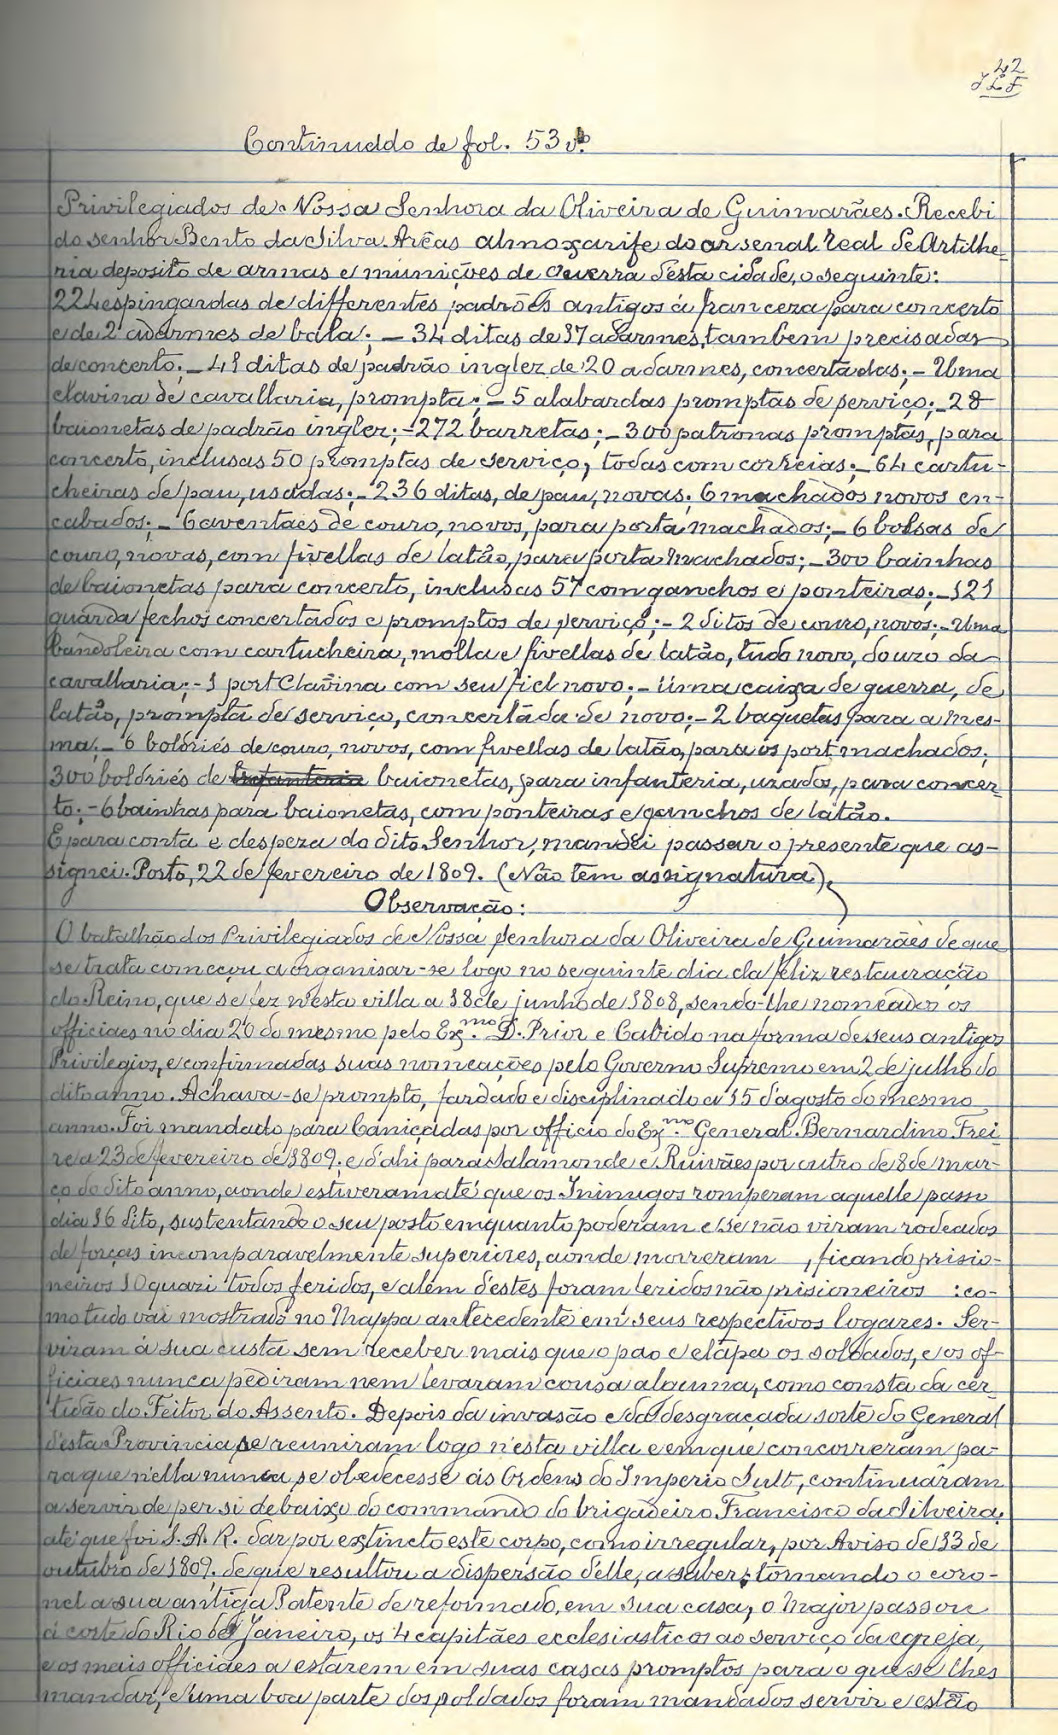 42
Continuddo de fol. 53 v.º
Privilegiados de Nossa Senhora da Oliveira de Guimarães. Recebi
do senhor Bento da Silva Arêas almoxarife do arsenal real de Artilhe-
ria deposito de armas e munições de Guerra d'esta cidade, o seguinte:
224 espingardas de differentes padrões antigos á franceza para concerto
e de 2 adarmes de bala; — 34 ditas de 17 adarmes, tambem precisadas
de concerto; — 41 ditas de padrão inglez de 20 adarmes, concertadas; — Uma
clavina de cavallaria, prompta; — 5 alabardas promptas de serviço; — 28
baionetas de padrão inglez; — 272 barretas; — 300 patronas promptas, para
concerto, inclusas 50 promptas de serviço, todas com correias; — 64 cartu-
cheiras de pau, usadas; — 236 ditas, de pau, novas; 6 machados novos en-
cabados; — 6 aventaes de couro, novos, para porta machados; — 6 bolsas de
couro, novas, com fivellas de latão, para porta machados; — 300 bainhas
de baionetas para concerto, inclusas 57 com ganchos e ponteiras; — 121
guarda fechos concertados e promptos de serviço; — 2 ditos de couro, novos; — Uma
bandoleira com cartucheira, molla e fivellas de latão, tudo novo, do uzo da
cavallaria; — 1 port Clavina com seu fiel novo; — uma caixa de guerra, de
latão, prompta de serviço, concertada de novo; — 2 baquetas para a mes-
ma; — 6 boldriés de couro, novos, com fivellas de latão, para os port machados;
300 boldriés de baionetas, para infanteria, uzados, para concer-
to; — 6 bainhas para baionetas, com ponteiras e ganchos de latão.
E para conta e despeza do dito Senhor, mandei passar o presente que as-
signei. Porto, 22 de fevereiro de 1809. (Não tem assignatura).
Observação:
O batalhão dos Privilegiados de Nossa Senhora da Oliveira de Guimarães de que
se trata começou a organisar-se logo no seguinte dia da feliz restauração
do Reino, que se fez n'esta villa a 18 de junho de 1808, sendo-lhe nomeados os
officiaes no dia 20 do mesmo pelo Ex.mo D. Prior e Cabido na forma de seus antigos
Privilegios, e confirmadas suas nomeações pelo Governo Supremo em 2 de julho do
dito anno. Achava-se prompto, fardado e disciplinado a 15 d'agosto do mesmo
anno. Foi mandado para Caniçadas por officio do Ex.mo General Bernardino Frei-
re a 23 de fevereiro de 1809; e d'ahi para Salamonde e Ruivães por outro de 8 de mar-
ço do dito anno, aonde estiveram até que os Inimigos romperam aquelle passo
dia 16 dito, sustentando o seu posto emquanto poderam e se não viram rodeados
de forças incomparavelmente superiores, aonde morreram , ficando prisio-
neiros 10 quazi todos feridos, e além d'estes foram feridos não prisioneiros : co-
mo tudo vai mostrado no Mappa antecedente em seus respectivos logares. Ser-
viram á sua custa sem receber mais que o pão e etape os soldados, e os of-
ficiaes nunca pediram nem levaram cousa alguma, como consta da cer-
tidão do Feitor do Assento. Depois da invasão e da desgraçada sorte do General
d'esta Provincia se reuniram logo n'esta villa e em que concorreram pa-
ra que n'ella nunca se obedecesse ás Ordens do Imperio Sult, continuaram
a servir de per si debaixo do commando do brigadeiro Francisco da Silveira,
até que foi S. A. R. dar por extincto este corpo, como irregular, por Aviso de 13 de
outubro de 1809; de que resultou a dispersão d'elle, a saber; tornando o coro-
nel a sua antiga Patente de reformado, em sua casa, o Major passou
á corte do Rio de Janeiro, os 4 capitães ecclesiasticos ao serviço da egreja,
e os mais officiaes a estarem em suas casas promptos para o que se lhes
mandar, e uma boa parte dos soldados foram mandados servir e estão